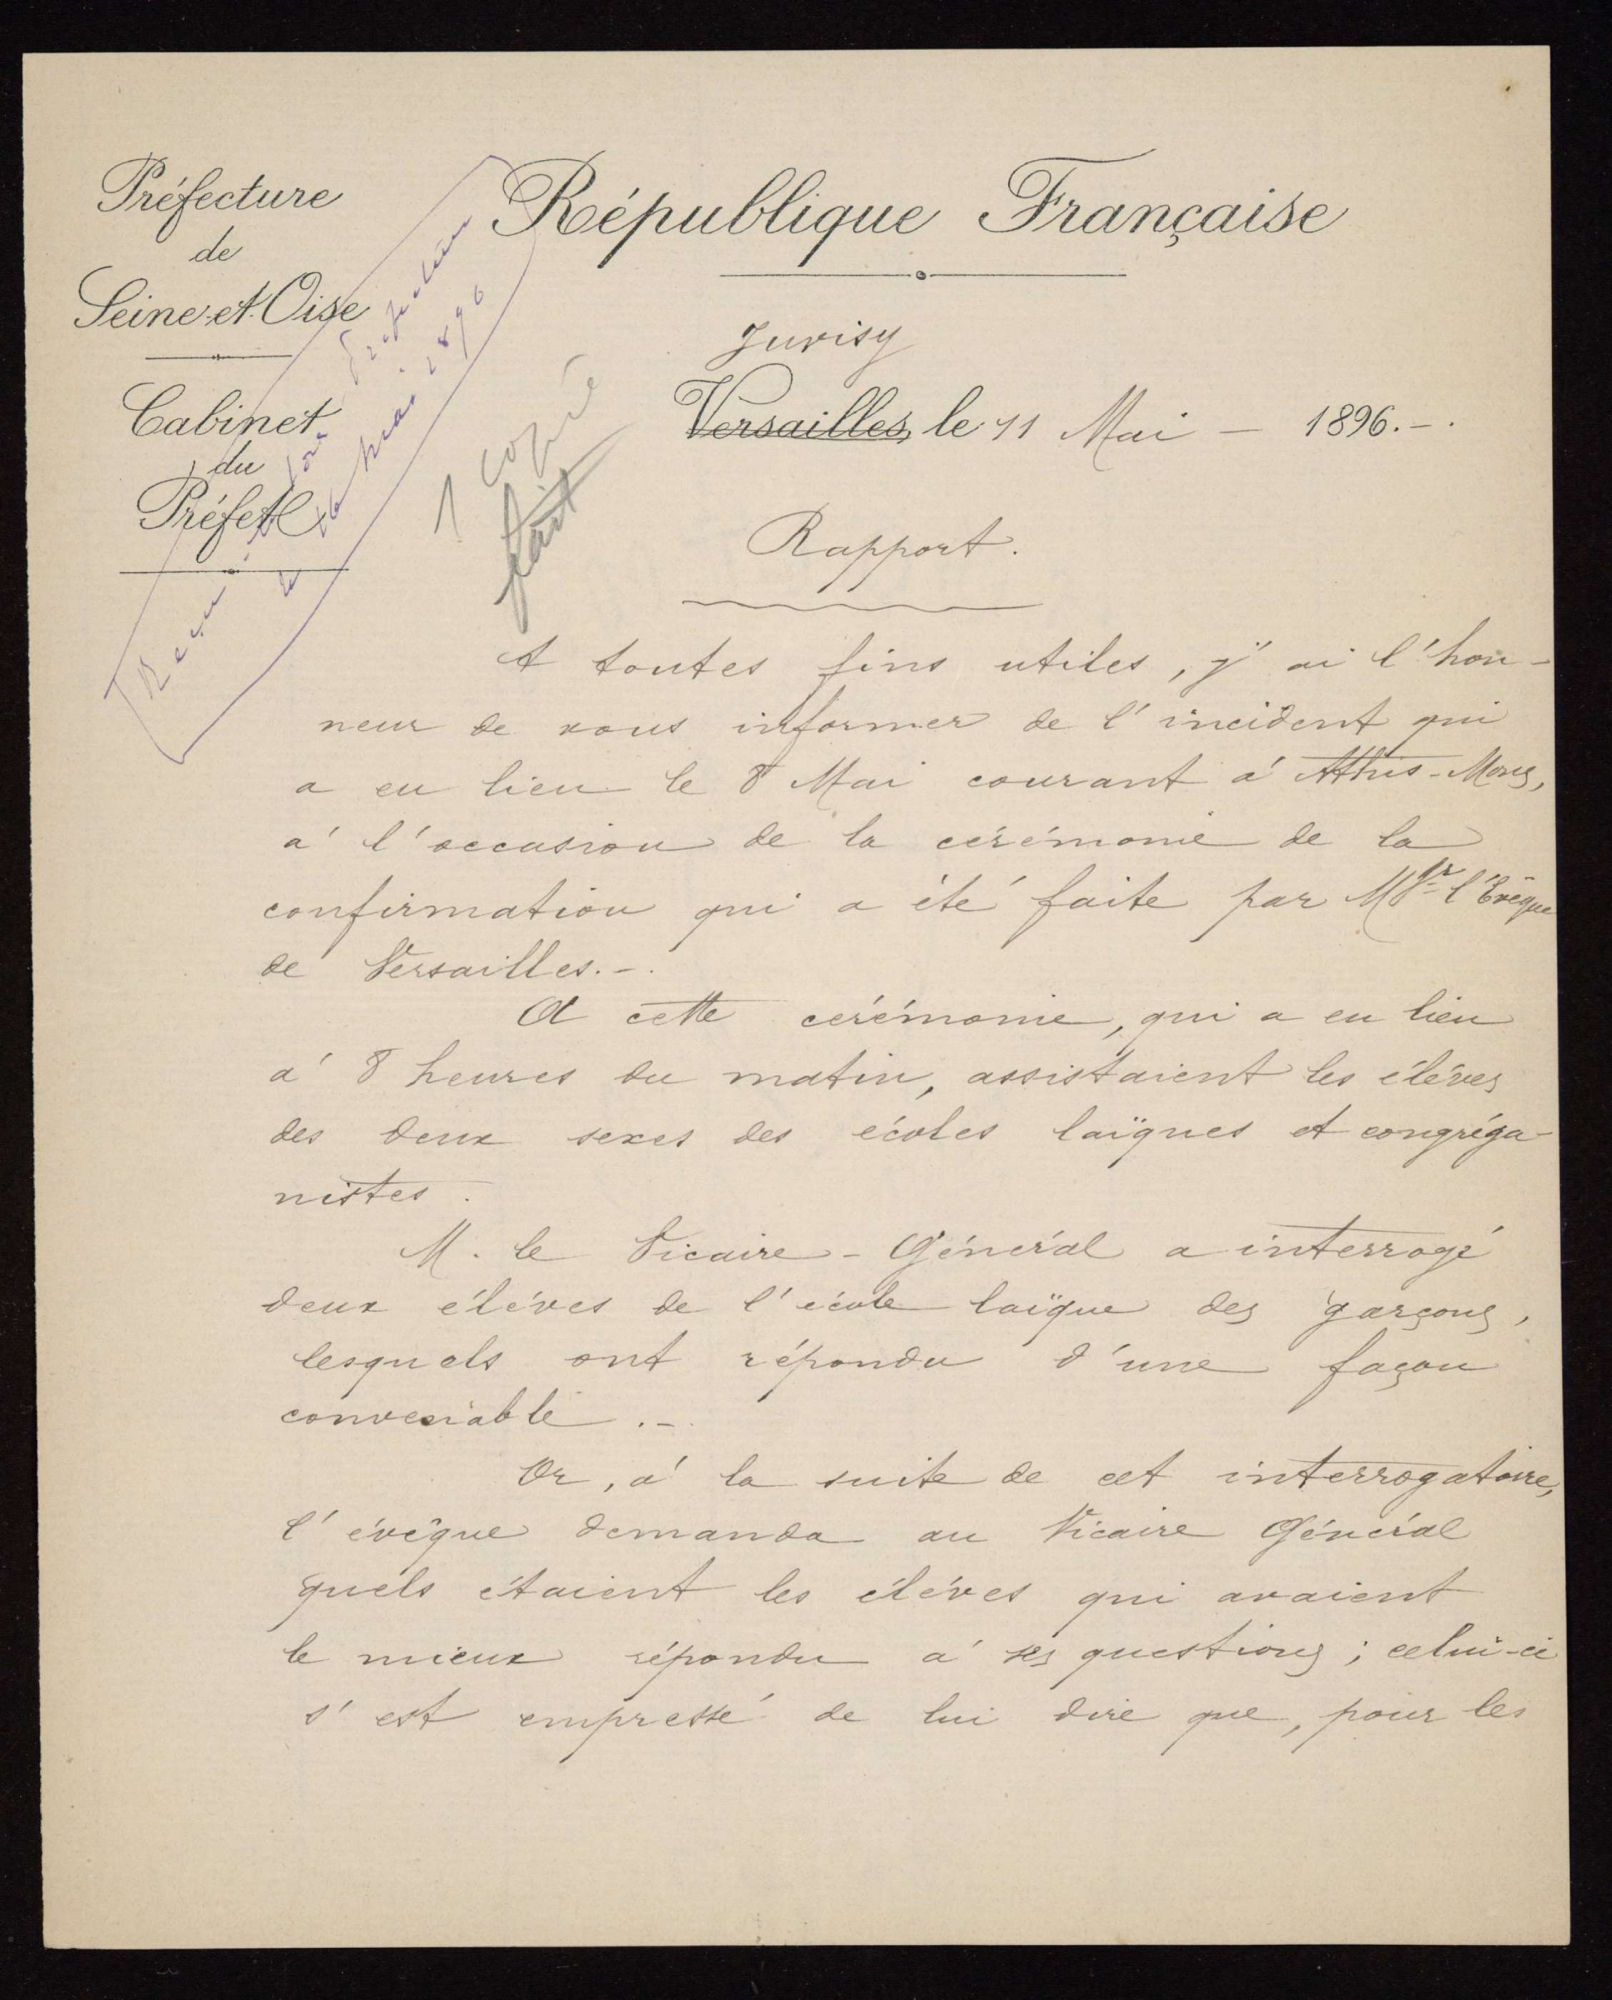 Préfecture
de
Seine-et-Oise
Cabinet
du
Préfet
République Française
Juvisy
Versailles, le 11 Mai - 1896.-.
1 copie
fait
Reçu
le mai 1896
Rapport.
A toutes fins utiles, j'ai l'hon-
neur de vous informer de l'incident qui
a eu lieu le 8 Mai courant à Athis-Mons,
à l'occasion de la cérémonie de la
confirmation qui a été faite par Mgr l'Évêque
de Versailles.-.
A cette cérémonie, qui a eu lieu
à 8 heures du matin, assistaient les élèves
des deux sexes des écoles laïques et congréga-
nistes.
M. le Vicaire-Général a interrogé
deux élèves de l'école laïque des garçons,
lesquels ont répondu d'une façon
convenable.-.
Or, à la suite de cet interrogatoire,
l'évêque demanda au Vicaire Général
quels étaient les élèves qui avaient
le mieux répondu à ses questions; celui-ci
s'est empressé de lui dire que, pour les